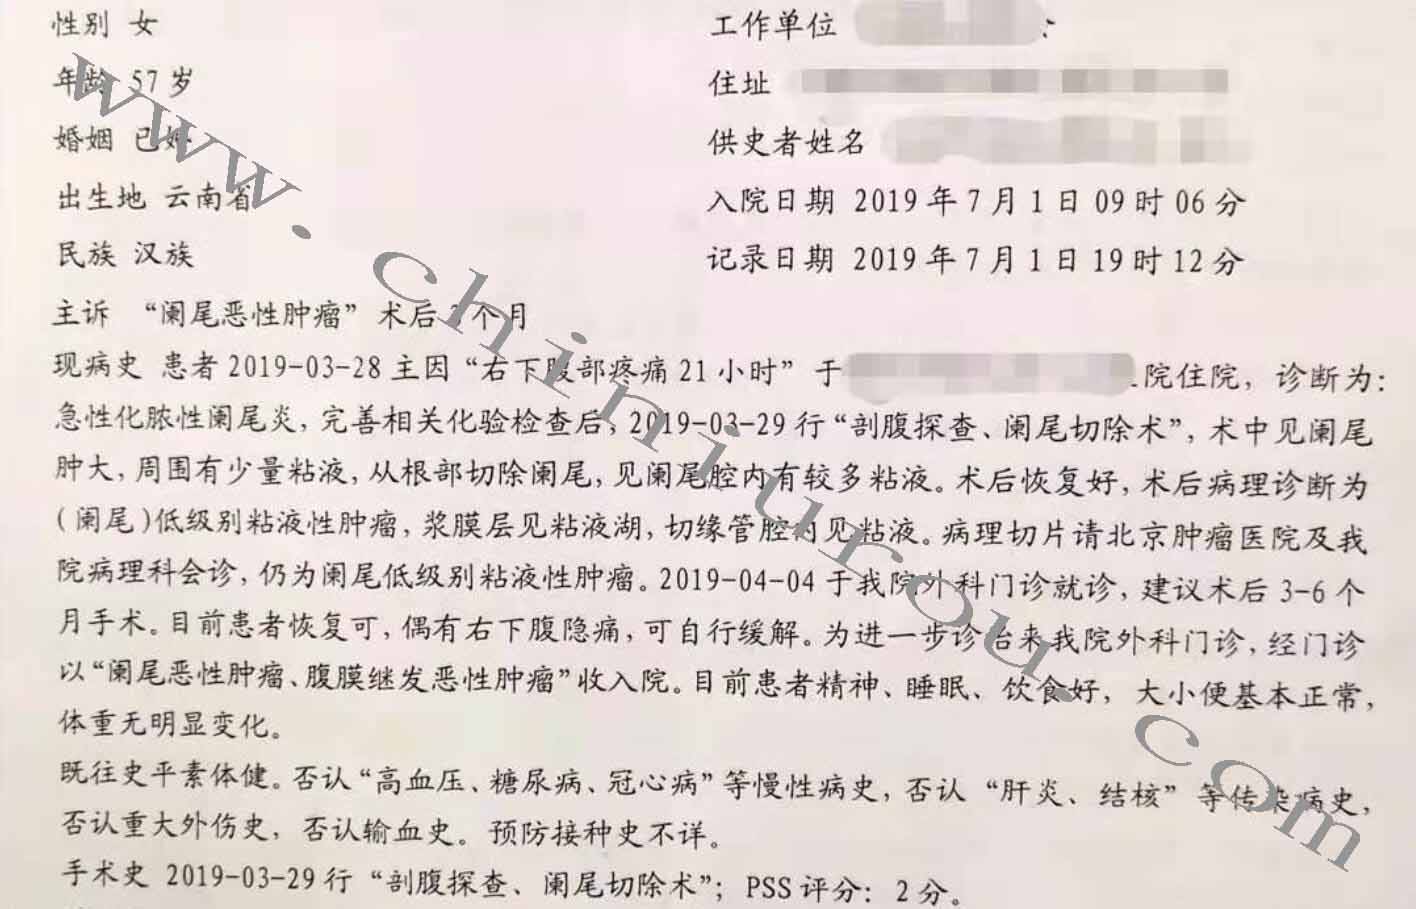 性别 女 工作单位
年龄 57 岁 住址
婚姻 已婚 供史者姓名
出生地 云南省 入院日期 2019 年 7 月 1 日 09 时 06 分
民族 汉族 记录日期 2019 年 7 月 1 日 19 时 12 分
主诉 “阑尾恶性肿瘤” 术后 个月
现病史 患者 2019-03-28 主因 “右下腹部疼痛 21 小时” 于 院住院, 诊断为:
急性化脓性阑尾炎, 完善相关化验检查后, 2019-03-29 行 “剖腹探查、阑尾切除术”, 术中见阑尾
肿大, 周围有少量粘液, 从根部切除阑尾, 见阑尾腔内有较多粘液。术后恢复好, 术后病理诊断为
(阑尾)低级别粘液性肿瘤, 浆膜层见粘液湖, 切缘管腔内见粘液。病理切片请北京肿瘤医院及我
院病理科会诊, 仍为阑尾低级别粘液性肿瘤。2019-04-04 于我院外科门诊就诊, 建议术后 3-6 个
月手术。目前患者恢复可, 偶有右下腹隐痛, 可自行缓解。为进一步诊治来我院外科门诊, 经门诊
以 “阑尾恶性肿瘤、腹膜继发恶性肿瘤” 收入院。目前患者精神、睡眠、饮食好, 大小便基本正常,
体重无明显变化。
既往史平素体健。否认 “高血压、糖尿病、冠心病” 等慢性病史, 否认 “肝炎、结核” 等传染病史,
否认重大外伤史, 否认输血史。预防接种史不详。
手术史 2019-03-29 行 “剖腹探查、阑尾切除术”; PSS 评分: 2 分。
www.chiniurou.com